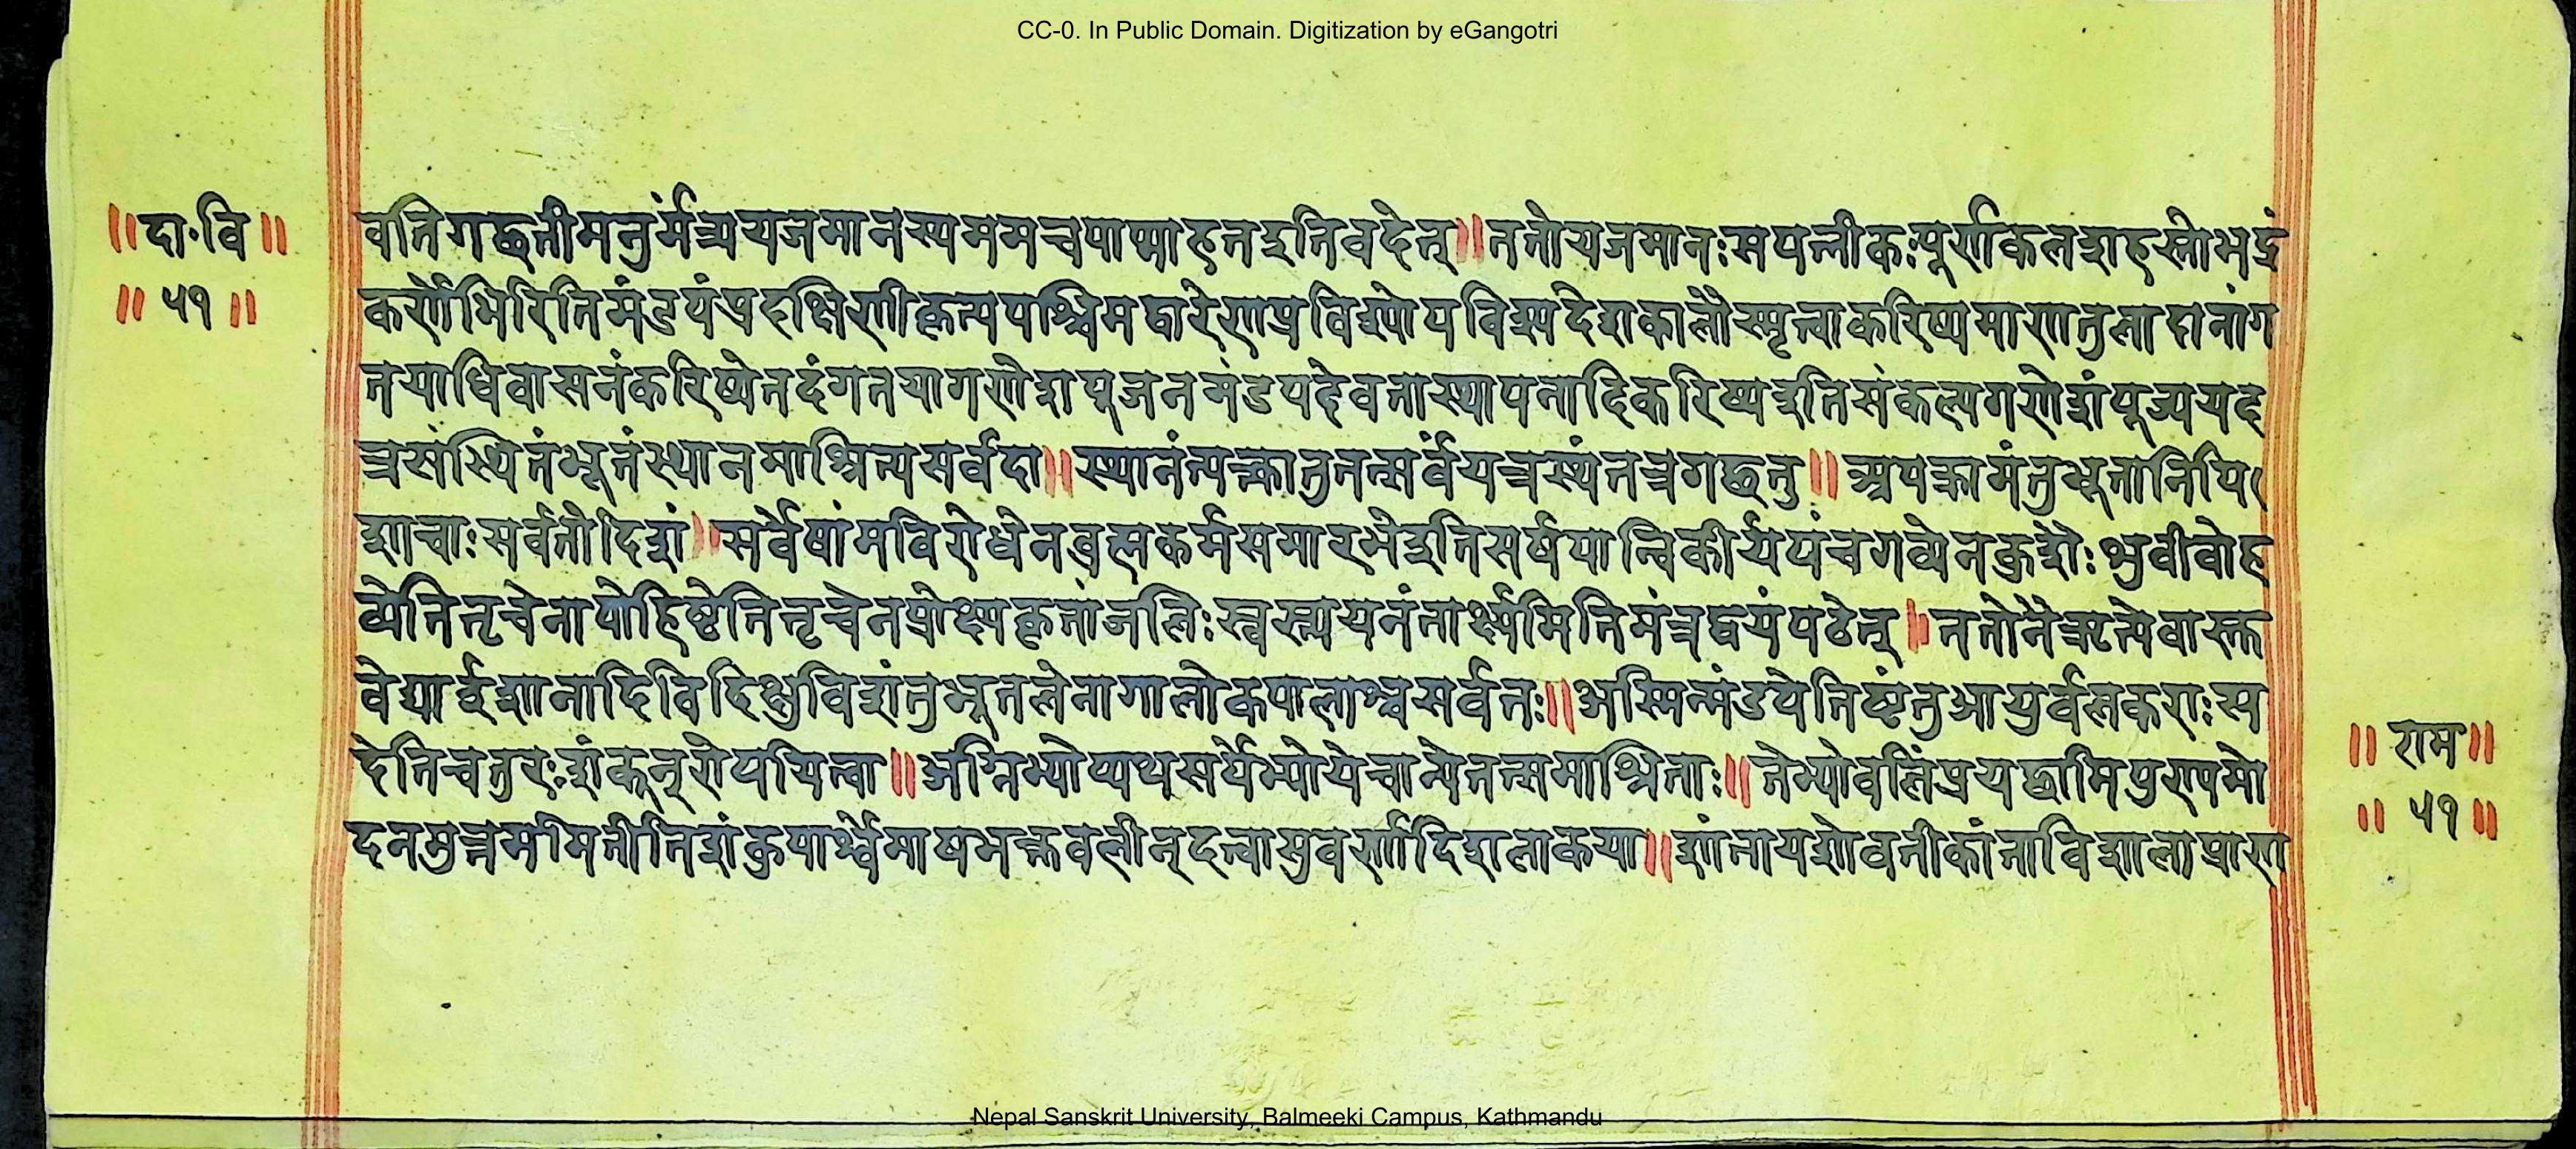 CC-0. In Public Domain. Digitization by eGangotri
॥दा.वि॥
॥ ५१ ॥
वतिगछतीमनुर्मंत्र्ययजमानस्यममचपाप्माहतइतिवदेत्॥ततोयजमानःसपत्नीकःपूर्णकलशहस्तोभद्रं
कर्णेभिरितिमंडपंप्रदक्षिणीकृत्यपश्चिमद्वारेणप्रविश्योपविश्यदेशकालौस्मृत्वाकरिष्यमाणतुलादानांग
तयाधिवासनंकरिष्येतदंगतयागणेशपूजनमंडपदेवतास्थापनादिकरिष्यइतिसंकल्पगणेशंपूज्ययद
त्रसंस्थितंभूतंस्थानमाश्रित्यसर्वदा॥स्थानंत्यक्त्वातुतत्सर्वंयत्रस्थंतत्रगछतु॥अपक्रामंतुभूतानिपि
शाचाःसर्वतोदिशं॥सर्वेषांमविरोधेनब्रह्मकर्मसमारभेइतिसर्षपान्विकीर्यपंचगव्येनकुशैःभुवीवोह
व्येतितृचेनापोहिष्टेतितृचेनप्रोक्ष्यकृतांजलिःस्वस्त्ययनंतार्क्ष्यमितिमंत्रद्वयंपठेत्॥ततोनैऋत्येवास्तु
वेद्यांईशानादिविदिक्षुविशंतुभूतलेनागालोकपालाश्चसर्वतः॥अस्मिन्मंडपेतिष्टंतुआयुर्वलकराःस
देतिचतुरःशंकून्रोपयित्वा॥अग्निभ्योप्यथसर्पेभ्योयेचान्येतत्समाश्रिताः॥तेभ्योवलिंप्रयछामिपुण्यमो
दनमुत्तममितीतिशंकुपार्श्वेमाषभक्तवलीन्दत्वासुवर्णादिशलाकया॥शांतायशोवतीकांताविशालाप्राण
॥ राम॥
॥ ५१ ॥
Nepal Sanskrit University, Balmeeki Campus, Kathmandu